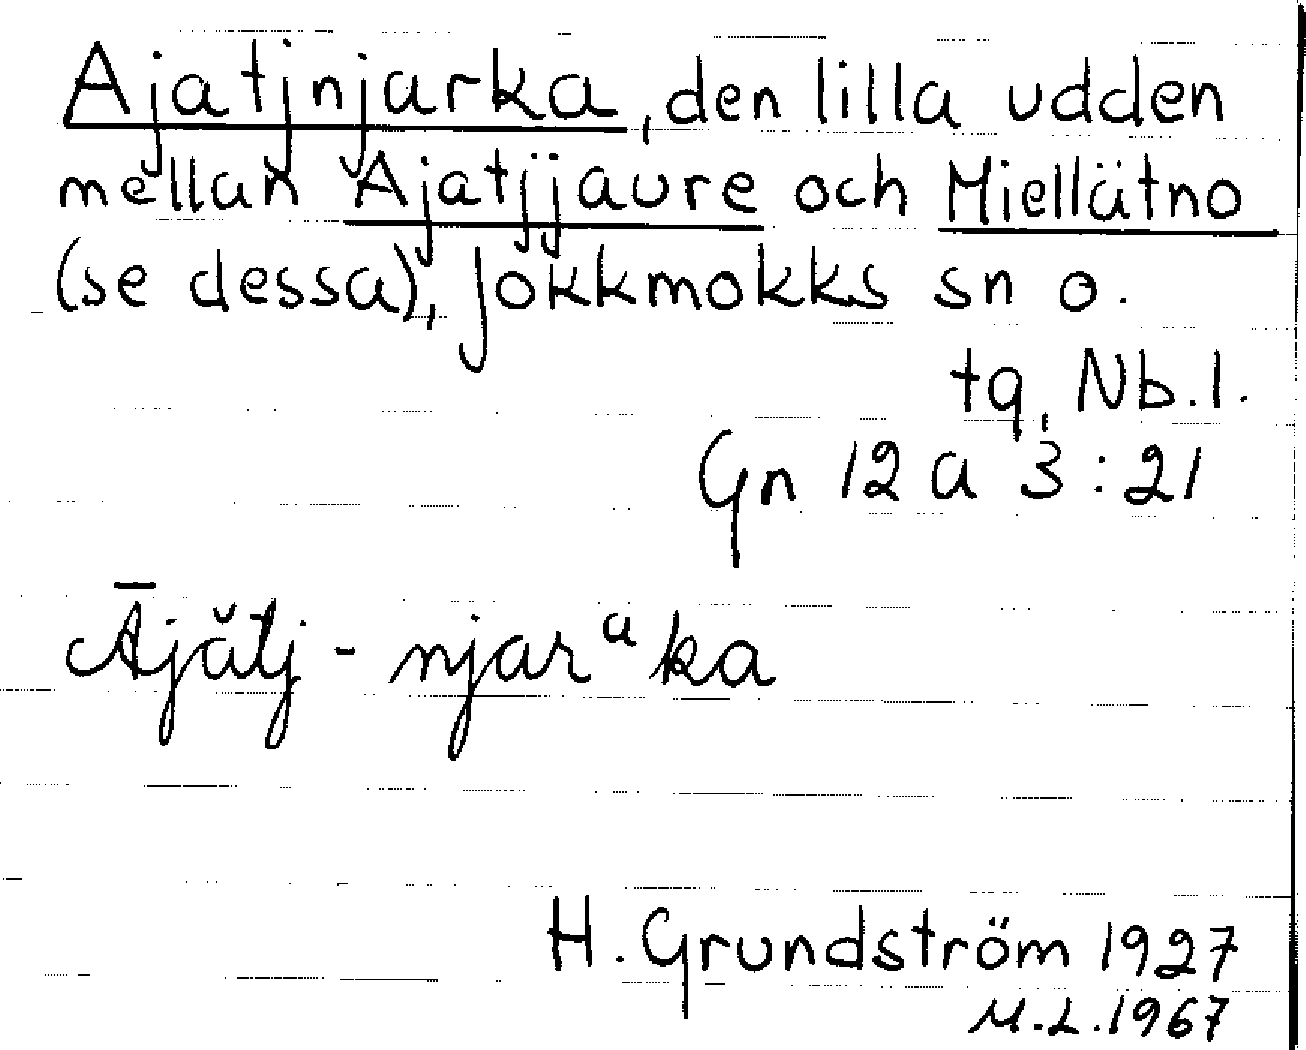 Ajatjnjarka, den lilla udden
mellan Ajatjjaure och Miellätno
(se dessa), Jokkmokks sn o.
tg, Nb.l.
Gn 12 a 3:21
Ājătj - njarᵃka
H. Grundström 1927
M.L.1967